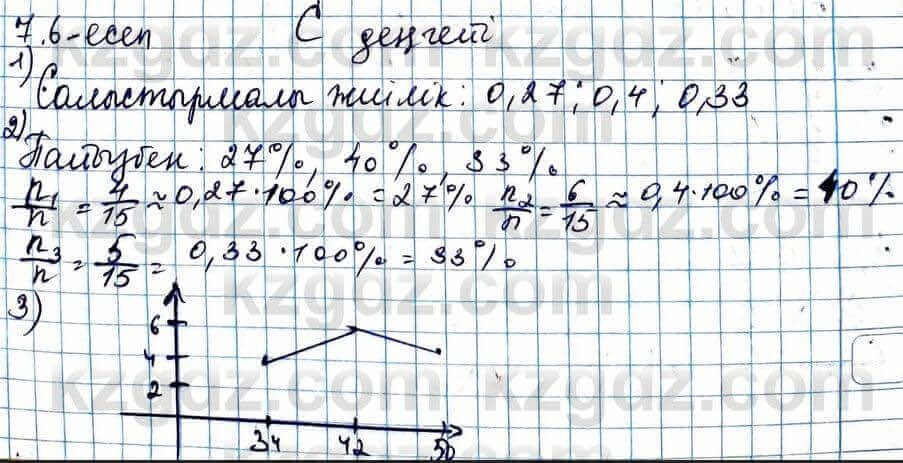 7.6-есеп С деңгейі
1)
Салыстырмалы жиілік: 0,27; 0,4; 0,33
2)
Пайызбен: 27%, 40%, 33%.
n₁/n = 4/15 ≈ 0,27·100% = 27% n₂/n = 6/15 ≈ 0,4·100% = 40%
n₃/n = 5/15 = 0,33·100% = 33%
3)
6
4
2
34 42 50
kzgdz.com